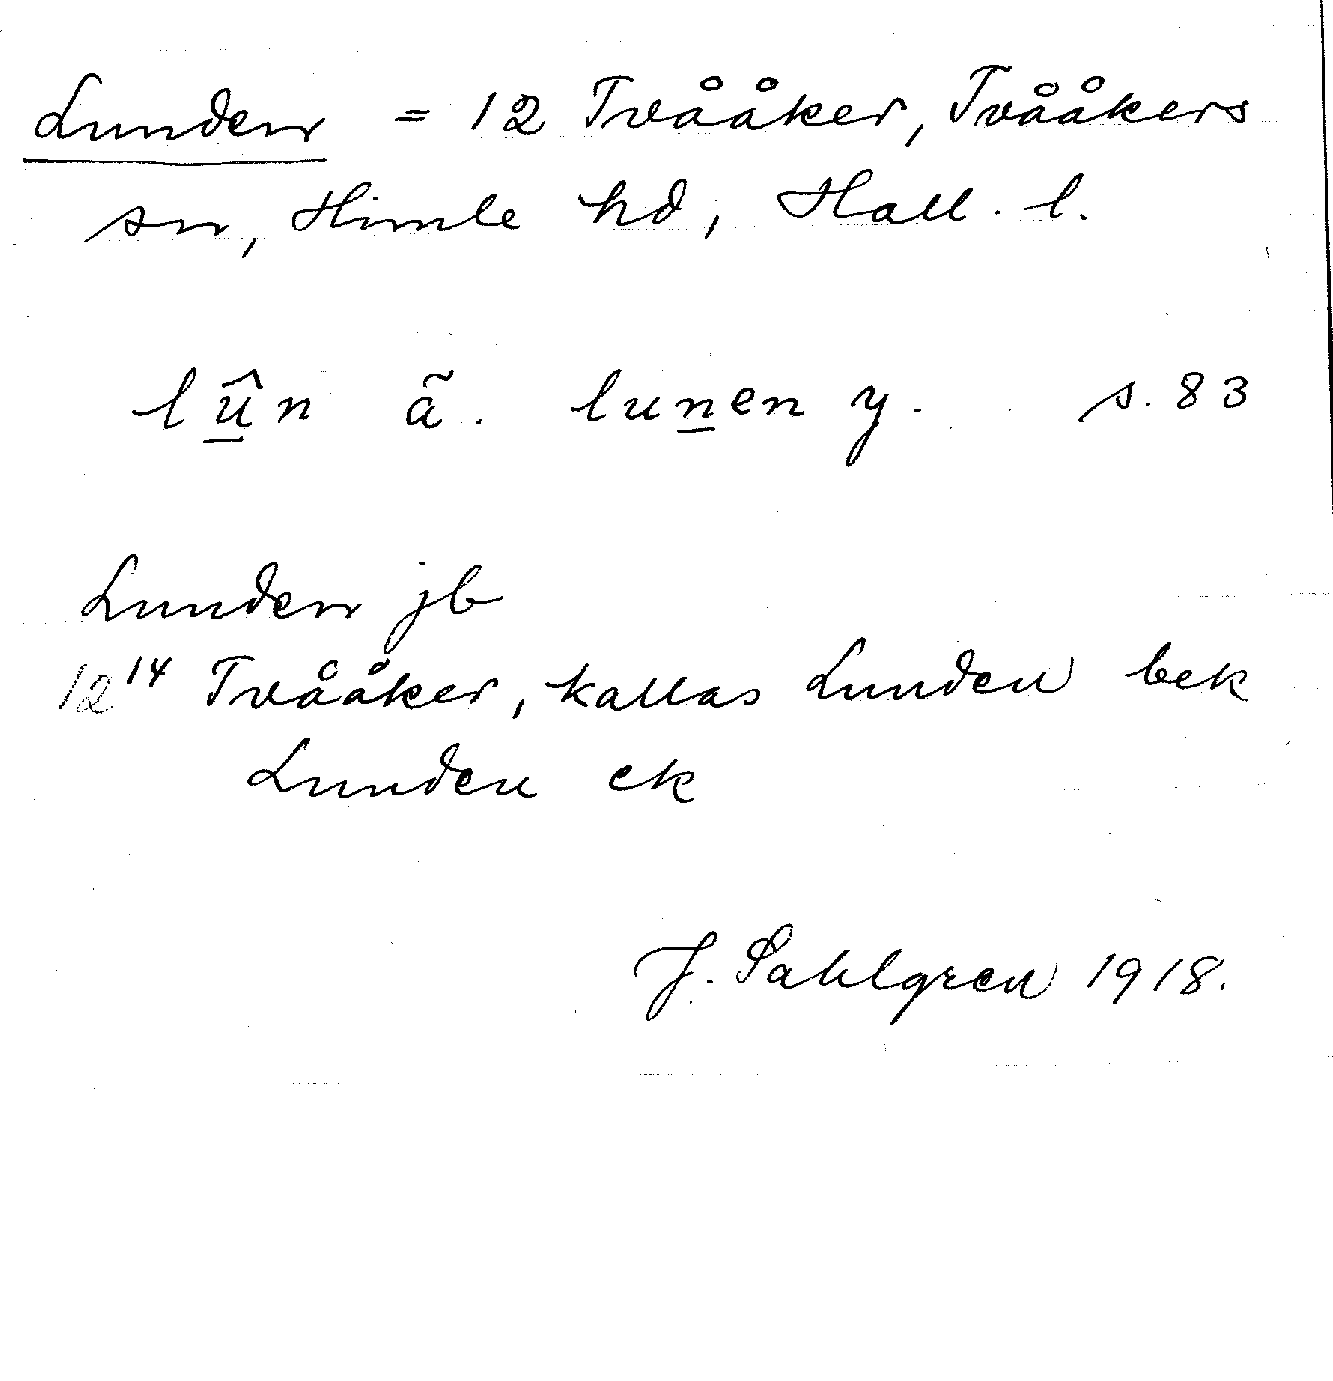 Lunden = 12 Tvååker, Tvååkers
sn, Himle hd, Hall. l.
lû̲n ã. lun̲en y. s. 83
Lunden jb
12¹⁴ Tvååker, kallas Lunden bek
Lunden ek
J. Sahlgren 1918.